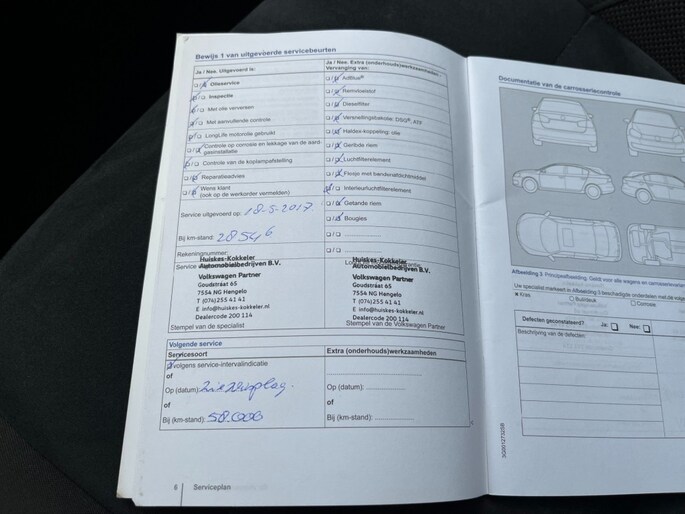 Bewijs 1 van uitgevoerde servicebeurten
Ja / Nee. Uitgevoerd is:
Ja / Nee. Extra (onderhouds)werkzaamheden / Vervanging van:
Olieservice
Inspectie
Met olie verversen
Met aanvullende controle
LongLife motorolie gebruikt
Controle op corrosie en lekkage van de aard-
gasinstallatie
Controle van de koplampafstelling
Reparatieadvies
Wens klant
(ook op de werkorder vermelden)
Service uitgevoerd op: 18-5-2017
Bij km-stand: 28546
Rekeningnummer:
AdBlue®
Remvloeistof
Dieselfilter
Versnellingsbakolie: DSG®, ATF
Haldex-koppeling: olie
Geribde riem
Luchtfilterelement
Flesje met bandenafdichtmiddel
Interieurluchtfilterelement
Getande riem
Bougies
Huiskes-Kokkeler
Automobielbedrijven B.V.
Volkswagen Partner
Goudstraat 65
7554 NG Hengelo
T (074)255 41 41
E info@huiskes-kokkeler.nl
Dealercode 200 114
Stempel van de specialist
Huiskes-Kokkeler
Automobielbedrijven B.V.
Volkswagen Partner
Goudstraat 65
7554 NG Hengelo
T (074)255 41 41
E info@huiskes-kokkeler.nl
Dealercode 200 114
Stempel van de Volkswagen Partner
Volgende service
Servicesoort
volgens service-intervalindicatie
of
Op (datum):
of
Bij (km-stand): 58.000
Extra (onderhouds)werkzaamheden
Op (datum):
of
Bij (km-stand):
6 Serviceplan
Documentatie van de carrosseriecontrole
Afbeelding 3 Principeafbeelding: Geldt voor alle wagens en carrosserievarianten
Uw specialist markeert in Afbeelding 3 beschadigde onderdelen met de volgende
Kras Buil/deuk Corrosie
Defecten geconstateerd? Ja: Nee:
Beschrijving van de defecten: